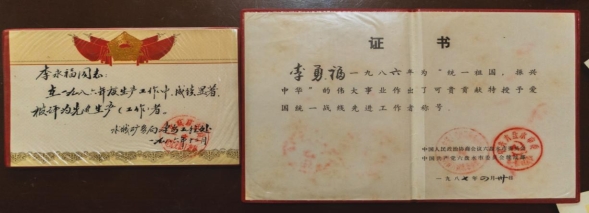 李永福同志:
在一九八六年度生产工作中,成绩显著,
被评为先进生产(工作)者。
水城矿务局
一九八六年十二月
证 书
李勇福一九八六年为“统一祖国,振兴
中华”的伟大事业作出了可贵贡献特授予爱
国统一战线先进工作者称号。
中国人民政治协商会议六盘水市委员会
中国共产党六盘水市委员会统战部
一九八七年